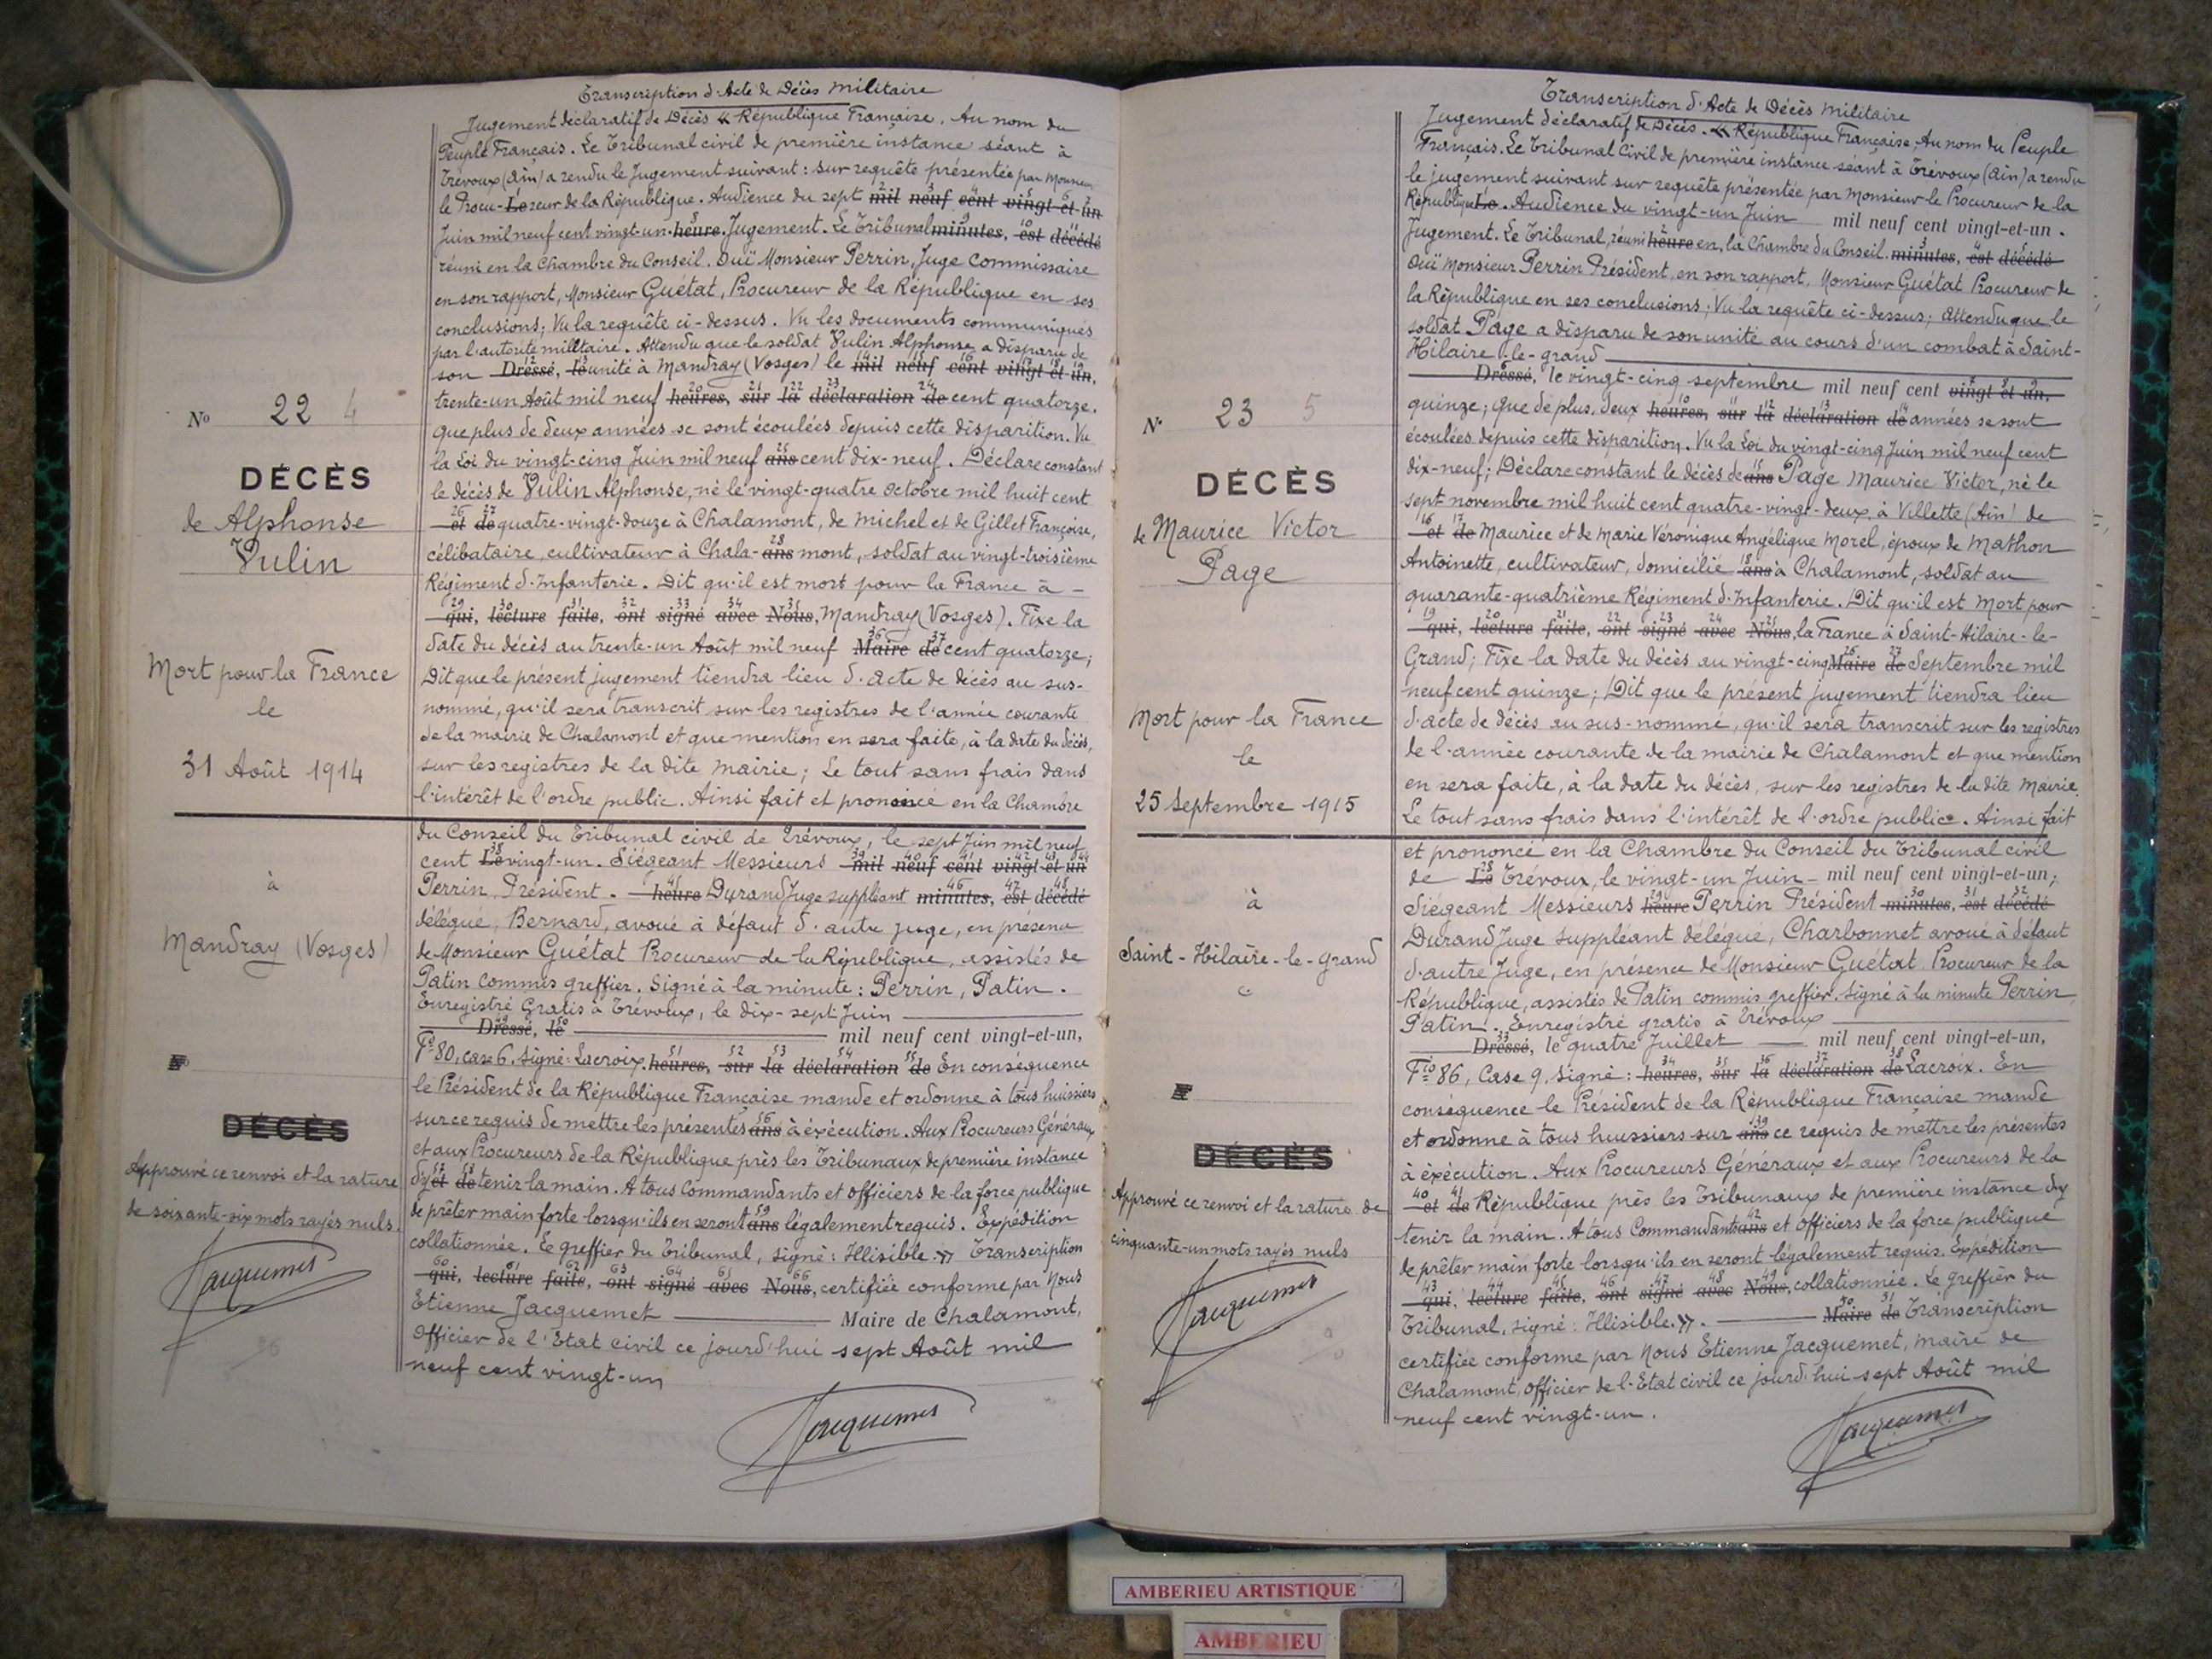 Transcription d'Acte de Décès Militaire
Jugement déclaratif de Décès « République Française. Au nom du
Peuple Français. Le Tribunal civil de première instance séant à
Trévoux (Ain) a rendu le Jugement suivant : sur requête présentée par Monsieur
le Procu- Le reur de la République. Audience du sept mil neuf cent vingt-et-un
Juin mil neuf cent vingt-un. heure. Jugement. Le Tribunal minutes, est décédé
réuni en la Chambre du Conseil. Ouï Monsieur Perrin, Juge Commissaire
en son rapport, Monsieur Guétat, Procureur de la République en ses
conclusions; Vu la requête ci-dessus. Vu les documents communiqués
par l'autorité militaire. Attendu que le soldat Vulin Alphonse a disparu de
son Dressé, le unité à Mandray (Vosges) le mil neuf cent vingt et un,
trente-un Août mil neuf heures, sur la déclaration de cent quatorze.
que plus de deux années se sont écoulées depuis cette disparition. Vu
la Loi du vingt-cinq Juin mil neuf ans cent dix-neuf. Déclare constant
le décès de Vulin Alphonse, né le vingt-quatre Octobre mil huit cent
et de quatre-vingt-douze à Chalamont, de Michel et de Gillet Françoise,
célibataire, cultivateur à Chala- ans mont, soldat au vingt-troisième
Régiment d'Infanterie. Dit qu'il est mort pour la France à -
qui, lecture faite, ont signé avec Nous, Mandray (Vosges). Fixe la
date du décès au trente-un Août mil neuf Maire de cent quatorze;
Dit que le présent jugement tiendra lieu d'acte de décès au sus-
nommé, qu'il sera transcrit sur les registres de l'année courante
de la mairie de Chalamont et que mention en sera faite, à la date du décès,
sur les registres de la dite mairie; Le tout sans frais dans
l'intérêt de l'ordre public. Ainsi fait et prononcé en la Chambre
du Conseil du Tribunal civil de Trévoux, le sept Juin mil neuf
cent Le vingt-un. Siégeant Messieurs mil neuf cent vingt et un
Perrin, Président. heure Durand Juge suppléant minutes, est décédé
délégué, Bernard, avoué à défaut d'autre juge, en présence
de Monsieur Guétat Procureur de la République, assistés de
Patin Commis greffier. Signé à la minute : Perrin, Patin.
Enregistré Gratis à Trévoux, le dix-sept Juin
Dressé, le mil neuf cent vingt-et-un,
F° 80, case 6. Signé : Lacroix. heures, sur la déclaration de En conséquence
le Président de la République Française mande et ordonne à tous huissiers
sur ce requis de mettre les présentes ans à éxécution. Aux Procureurs Généraux
et aux Procureurs de la République près les Tribunaux de première instance
d'y et de tenir la main. A tous Commandants et Officiers de la force publique
de prêter main forte lorsqu'ils en seront ans légalement requis. Expédition
collationnée. Le greffier du Tribunal, signé : Illisible. » Transcription
qui, lecture faite, ont signé avec Nous, certifiée conforme par Nous
Etienne Jacquemet Maire de Chalamont,
Officier de l'Etat civil ce jourd'hui sept Août mil
neuf cent vingt-un
Jacquemet
No 22 4
DÉCÈS
de Alphonse
Vulin
Mort pour la France
le
31 Août 1914
à
Mandray (Vosges)
No
DÉCÈS
Approuvé ce renvoi et la rature
de soixante-six mots rayés nuls.
Jacquemet
Transcription d'Acte de Décès Militaire
Jugement déclaratif de Décès. « République Française. Au nom du Peuple
Français. Le Tribunal Civil de première instance séant à Trévoux (Ain) a rendu
le jugement suivant sur requête présentée par Monsieur le Procureur de la
République Le. Audience du vingt-un Juin mil neuf cent vingt-et-un.
Jugement. Le Tribunal, réuni heure en, la Chambre du Conseil. minutes, est décédé
Ouï Monsieur Perrin Président, en son rapport, Monsieur Guétat Procureur de
la République en ses conclusions; Vu la requête ci-dessus; Attendu que le
soldat Page a disparu de son unité au cours d'un combat à Saint-
Hilaire-le-grand
Dressé, le vingt-cinq septembre mil neuf cent vingt et un,
quinze; que de plus, deux heures, sur la déclaration de années se sont
écoulées depuis cette disparition. Vu la Loi du vingt-cinq Juin mil neuf cent
dix-neuf; Déclare constant le décès de ans Page Maurice Victor, né le
sept novembre mil huit cent quatre-vingt-deux, à Villette (Ain) de
et de Maurice et de Marie Véronique Angélique Morel, époux de Mathon
Antoinette, cultivateur, domicilié ans à Chalamont, soldat au
quarante-quatrième Régiment d'Infanterie. Dit qu'il est Mort pour
qui, lecture faite, ont signé avec Nous, la France à Saint-Hilaire-le-
Grand; Fixe la date du décès au vingt-cinq Maire de Septembre mil
neuf cent quinze; Dit que le présent jugement tiendra lieu
d'acte de décès au sus-nommé, qu'il sera transcrit sur les registres
de l'année courante de la mairie de Chalamont et que mention
en sera faite, à la date du décès, sur les registres de la dite Mairie.
Le tout sans frais dans l'intérêt de l'ordre public. Ainsi fait
et prononcé en la Chambre du Conseil du Tribunal civil
de Le Trévoux, le vingt-un Juin mil neuf cent vingt-et-un;
Siégeant Messieurs heure Perrin Président minutes, est décédé
Durand Juge suppléant délégué, Charbonnet avoué à défaut
d'autre Juge, en présence de Monsieur Guétat Procureur de la
République, assistés de Patin commis greffier. Signé à la minute Perrin,
Patin. Enregistré gratis à Trévoux
Dressé, le quatre Juillet mil neuf cent vingt-et-un,
F° 86, Case 9, Signé : heures, sur la déclaration de Lacroix. En
conséquence le Président de la République Française mande
et ordonne à tous huissiers sur ans ce requis de mettre les présentes
à éxécution. Aux Procureurs Généraux et aux Procureurs de la
et de République près les Tribunaux de première instance d'y
tenir la main. A tous Commandants ans et Officiers de la force publique
de prêter main forte lorsqu'ils en seront légalement requis. Expédition
qui, lecture faite, ont signé avec Nous, collationnée. Le greffier du
Tribunal, signé : Illisible. ». Maire de Transcription
certifiée conforme par Nous Etienne Jacquemet, Maire de
Chalamont, Officier de l'Etat civil ce jourd'hui sept Août mil
neuf cent vingt-un.
Jacquemet
N° 23 5
DÉCÈS
de Maurice Victor
Page
Mort pour la France
le
25 Septembre 1915
à
Saint-Hilaire-le-Grand
DÉCÈS
Approuvé ce renvoi et la rature de
cinquante-un mots rayés nuls
Jacquemet
AMBERIEU ARTISTIQUE
AMBERIEU